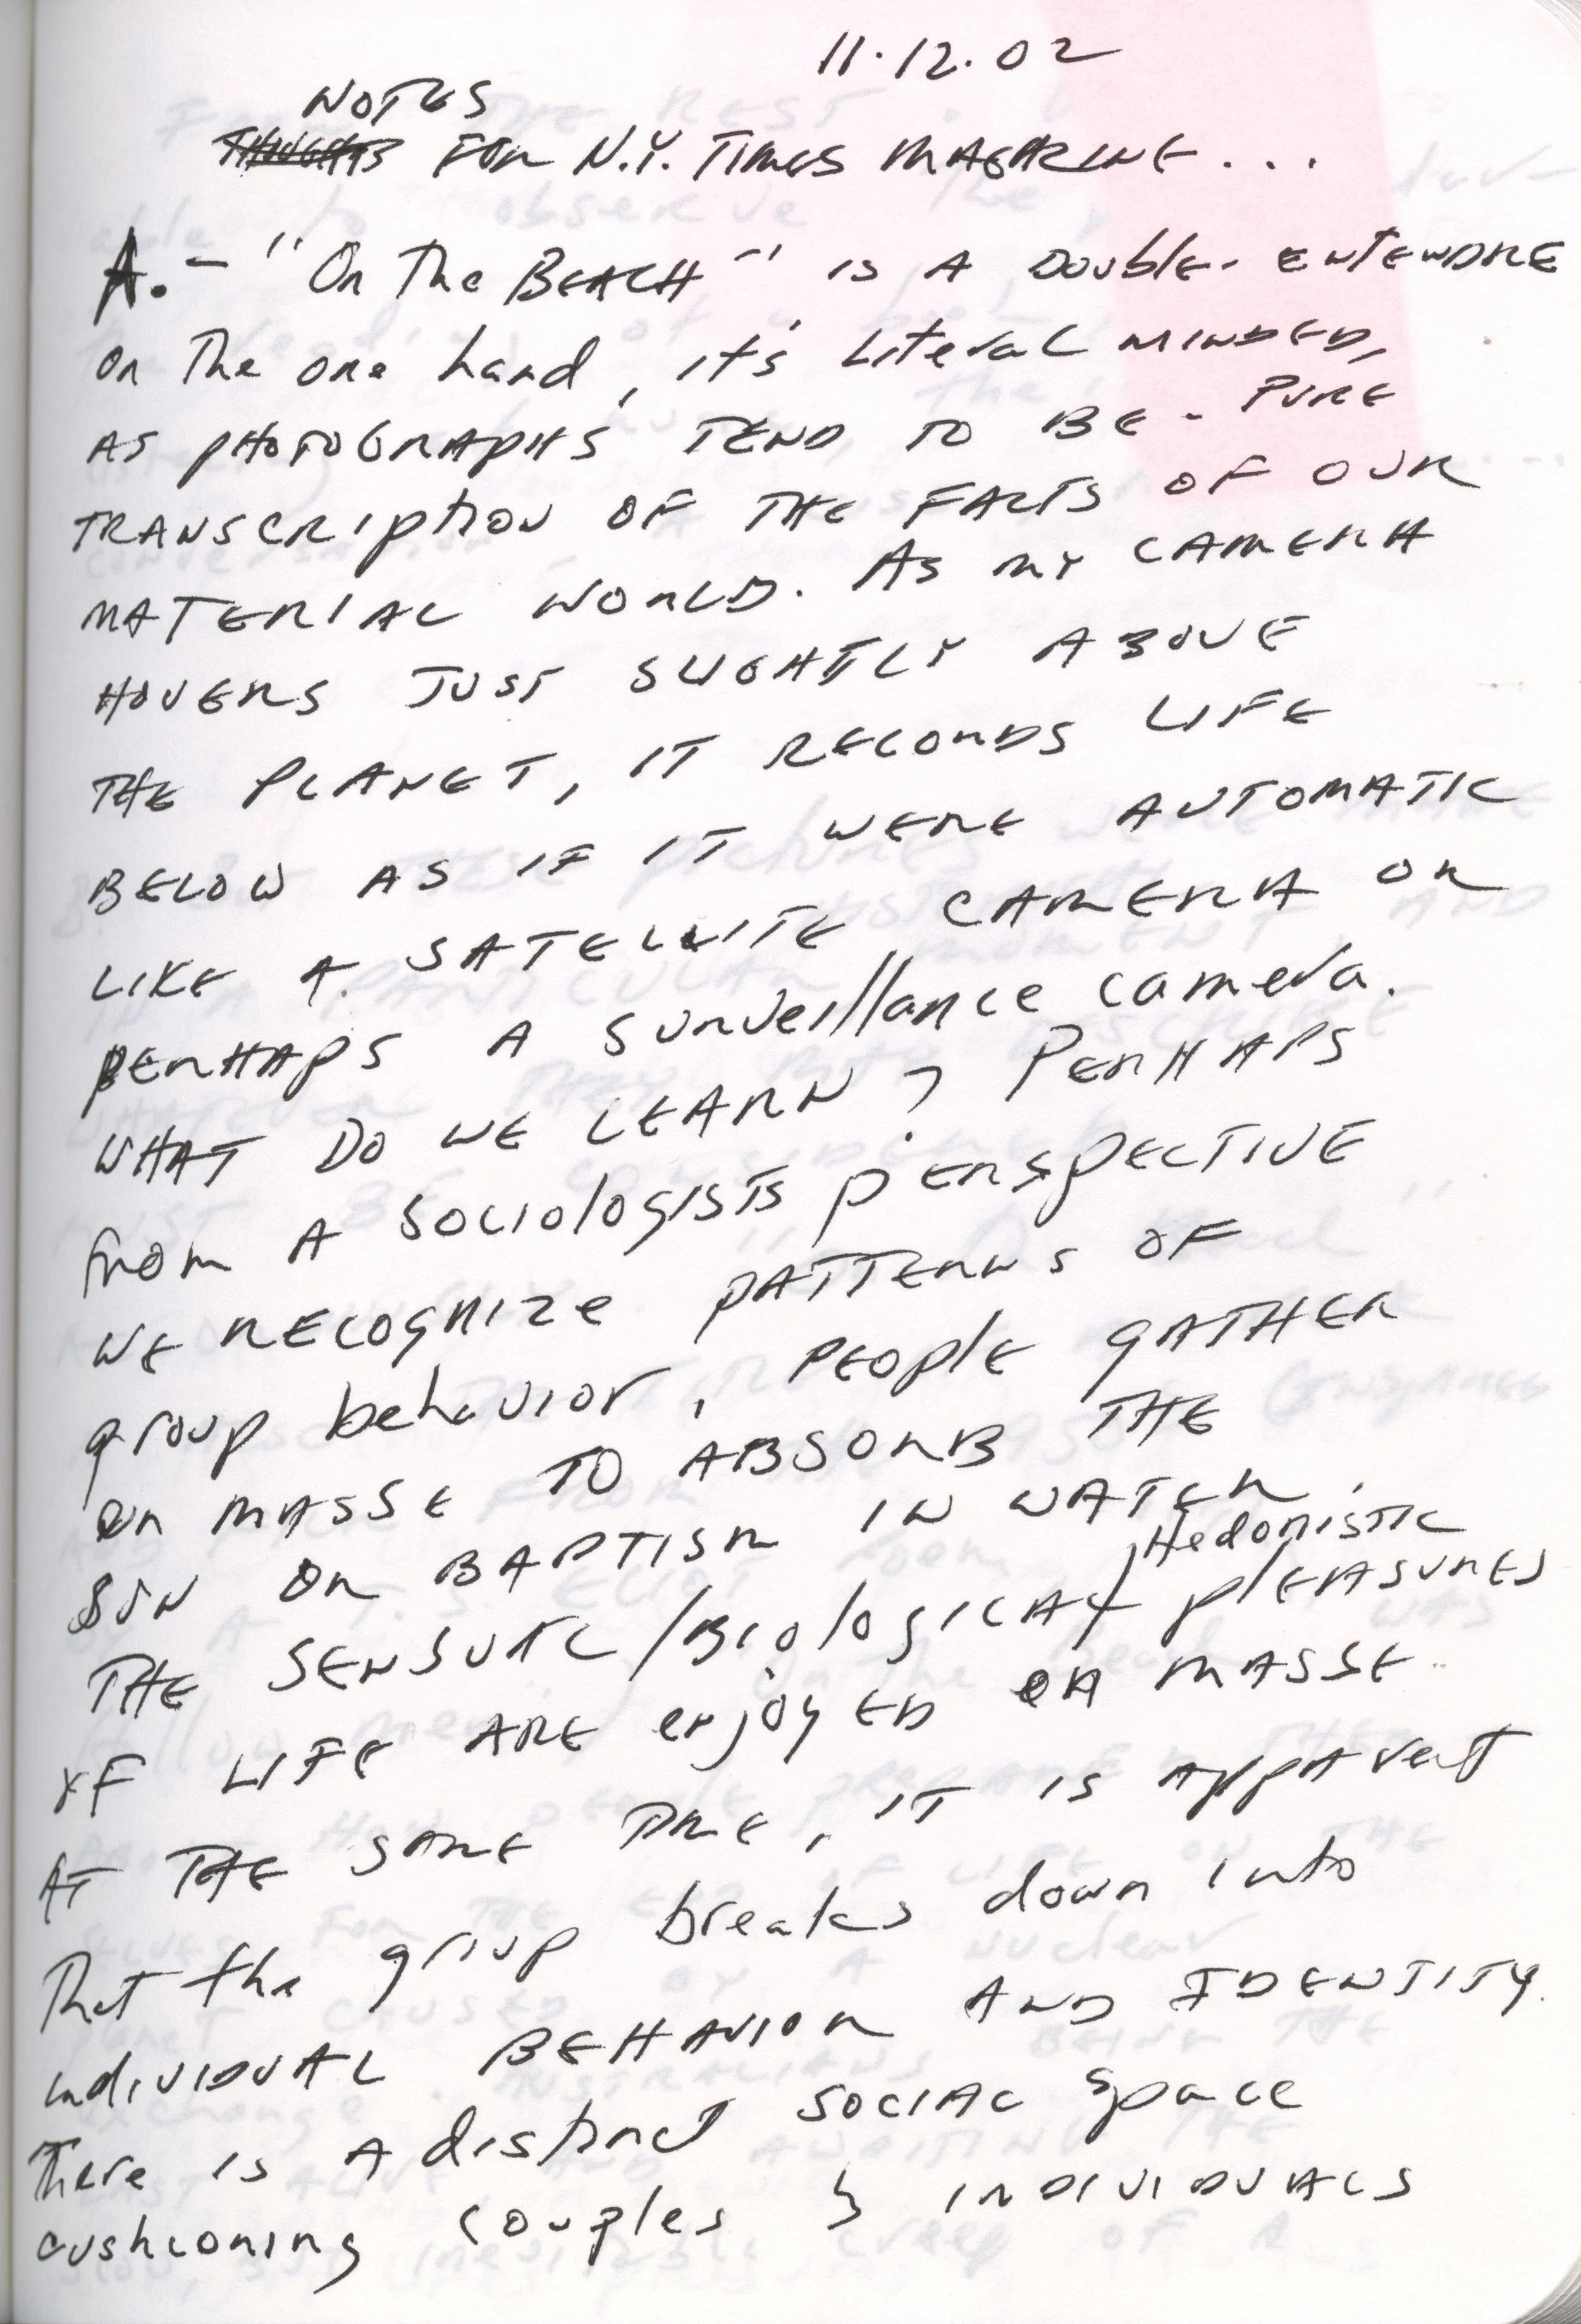 11.12.02
NOTES
THOUGHTS FOR N.Y. TIMES MAGAZINE...
A. - "On The BEACH" is A DOUble-ENTENDRE
on The one hand, it's Literal MINDED,
AS PHOTOGRAPHS TEND TO BE - PURE
TRANSCRIPTION OF THE FACTS OF OUR
MATERIAL WORLD. AS MY CAMERA
HOVERS JUST SLIGHTLY ABOVE
THE PLANET, IT RECORDS LIFE
BELOW AS IF IT WERE AUTOMATIC
LIKE A SATELLITE CAMERA OR
PERHAPS A Surveillance camera.
WHAT DO WE LEARN? PERHAPS
from A Sociologists PERSPECTIVE
WE RECOGNIZE PATTERNS OF
group behavior, PEOPLE GATHER
en MASSE TO ABSORB THE
SUN OR BAPTISM IN WATER.
Hedonistic
THE SENSUAL/Biological/pleasures
OF LIFE ARE enjoyED en MASSE.
AT THE SAME TIME, IT IS Apparent
That the group breaks down into
individual BEHAVIOR AND IDENTITY.
There is A distinct SOCIAL Space
cushioning couples & INDIVIDUALS